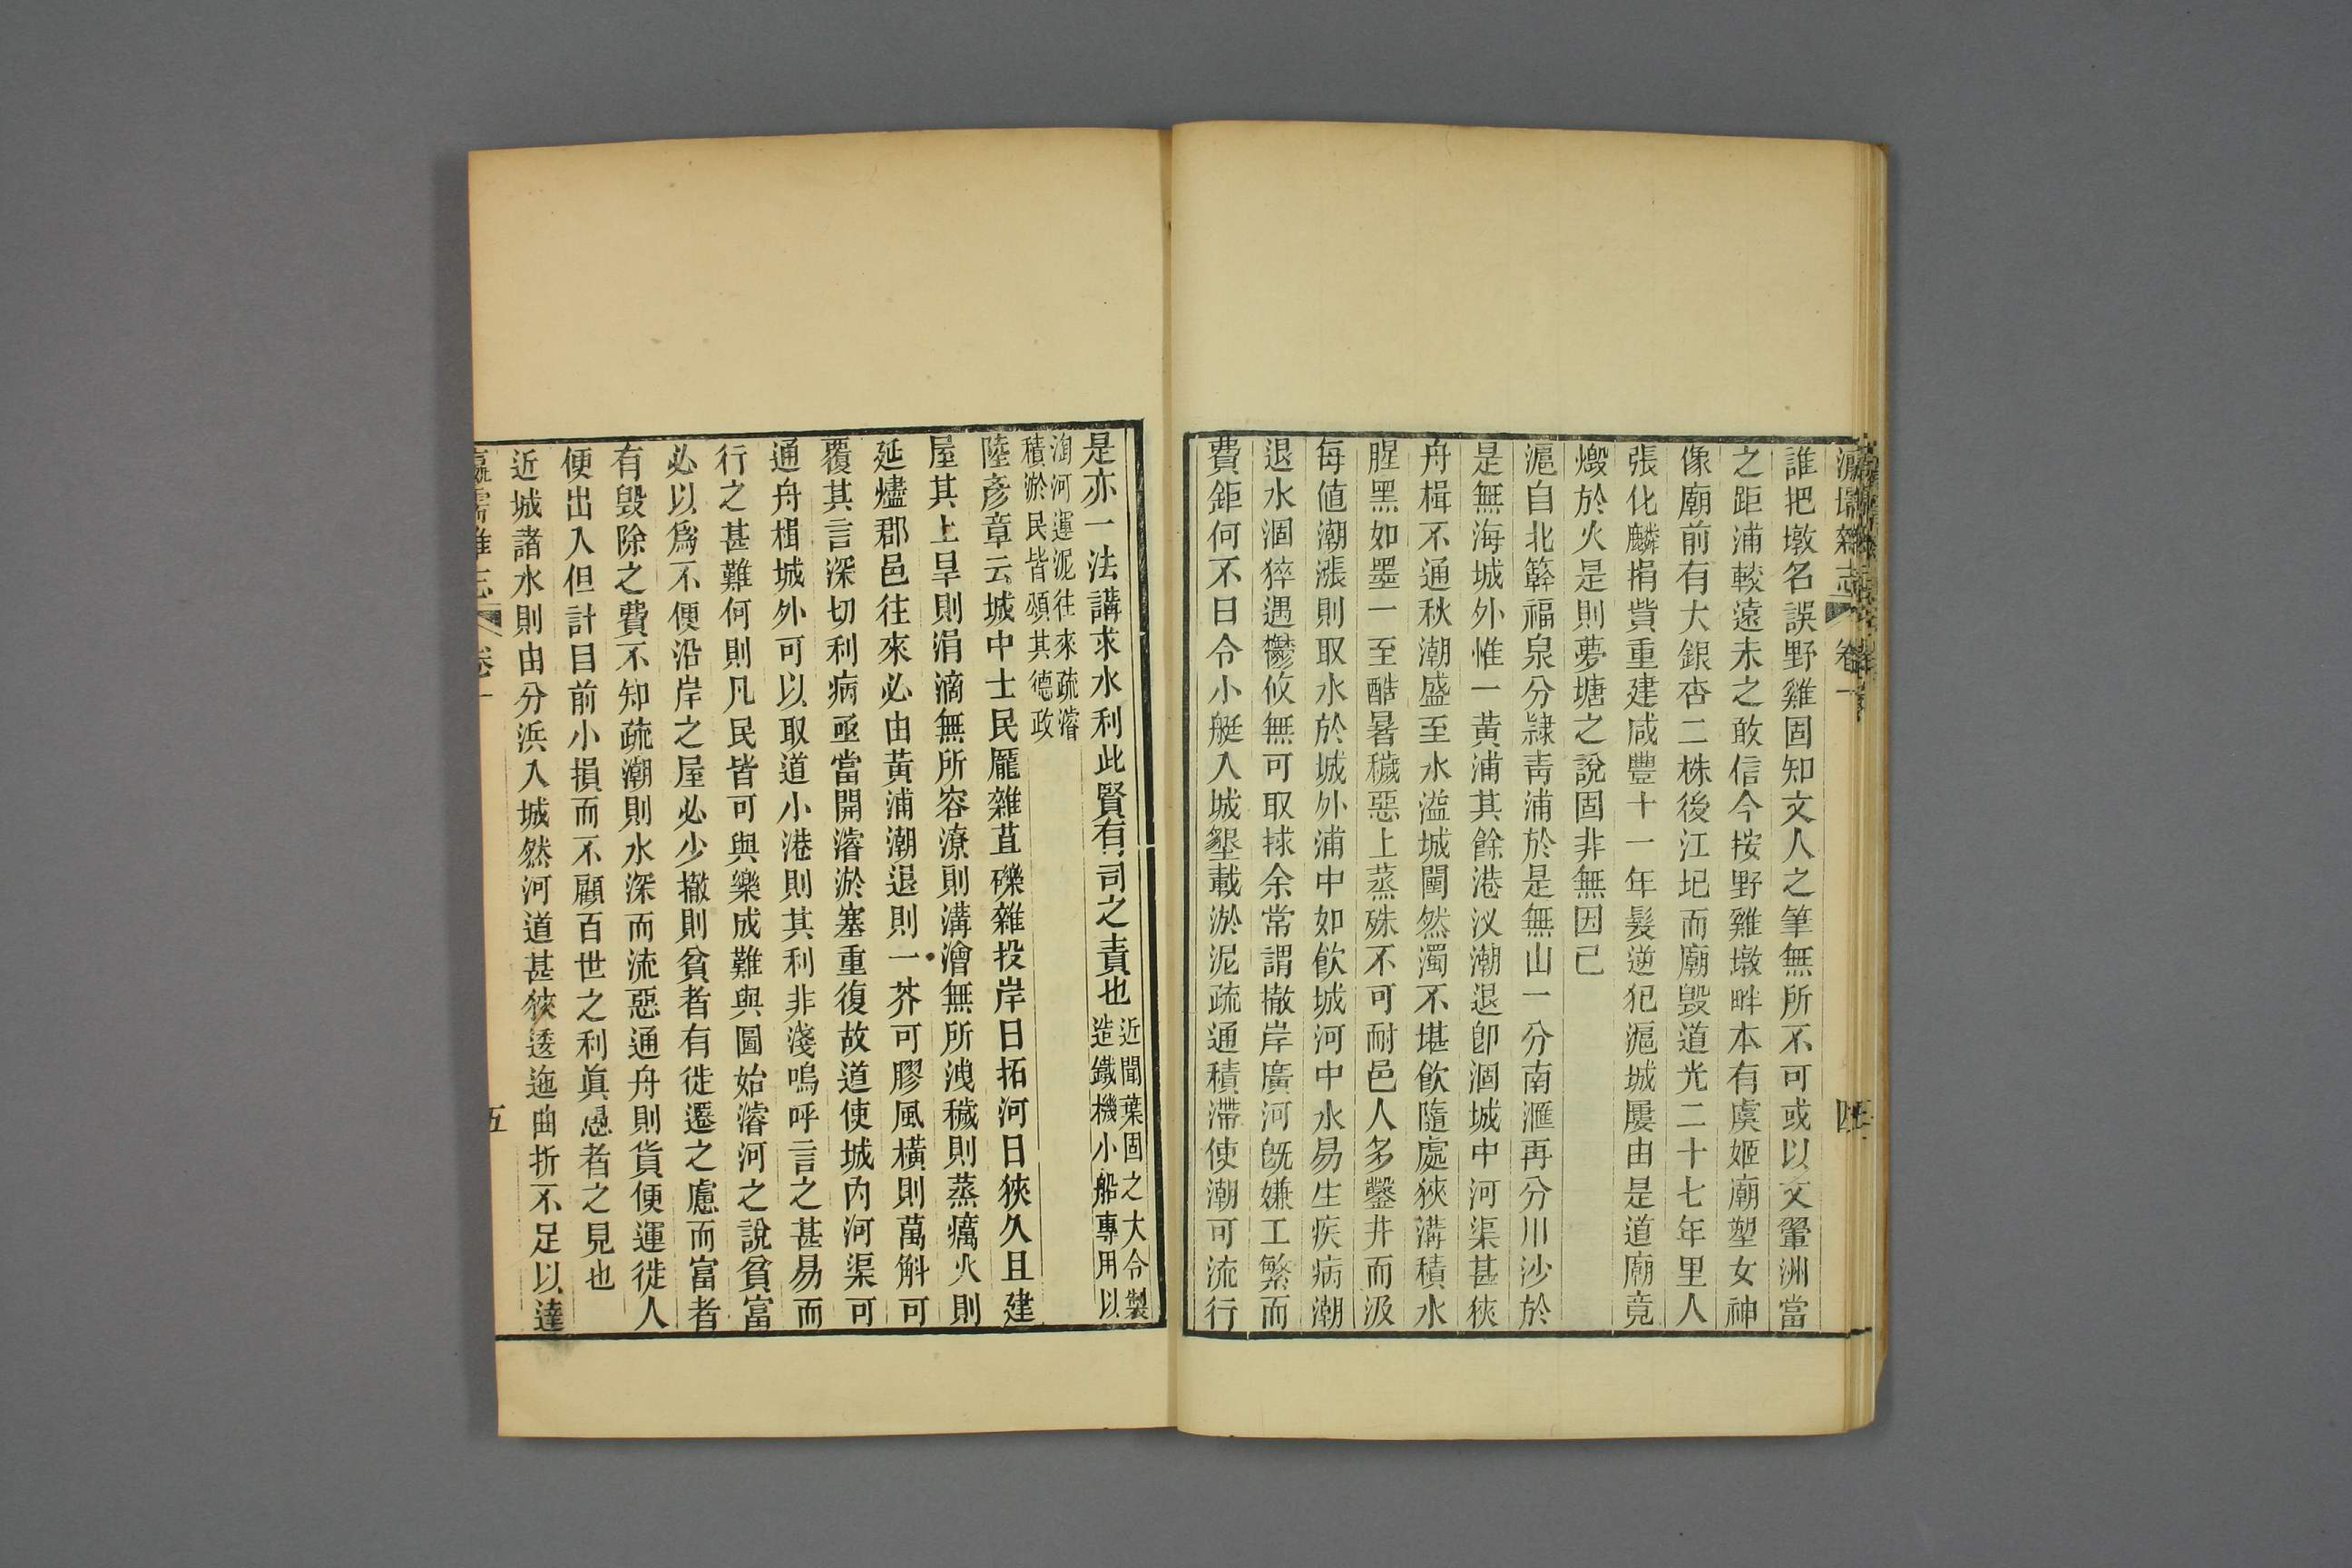 瀛壖雜志 卷一 四
誰把墩名誤野雞固知文人之筆無所不可或以文翬洲當
之距浦較遠未之敢信今按野雞墩畔本有虞姬廟塑女神
像廟前有大銀杏二株後江圮而廟毀道光二十七年里人
張化麟捐貲重建咸豐十一年髮逆犯滬城屢由是道廟竟
燬於火是則夢塘之說固非無因已
滬自北簳福泉分隸青浦於是無山一分南滙再分川沙於
是無海城外惟一黃浦其餘港汊潮退卽涸城中河渠甚狹
舟楫不通秋潮盛至水溢城闉然濁不堪飲隨處狹溝積水
腥黑如墨一至酷暑穢惡上蒸殊不可耐邑人多鑿井而汲
每値潮漲則取水於城外浦中如飮城河中水易生疾病潮
退水涸猝遇鬱攸無可取捄余常謂撤岸廣河旣嫌工繁而
費鉅何不日令小艇入城墾載淤泥疏通積滯使潮可流行
是亦一法講求水利此賢有司之責也近聞葉固之大令製造鐵機小船專用以
淘河運泥往來疏濬積淤民皆頌其德政
陸彥章云城中士民龐雜苴礫雜投岸日拓河日狹久且建
屋其上旱則涓滴無所容潦則溝澮無所洩穢則蒸癘火則
延燼郡邑往來必由黃浦潮退則一芥可膠風橫則萬斛可
覆其言深切利病亟當開濬淤塞重復故道使城內河渠可
通舟楫城外可以取道小港則其利非淺嗚呼言之甚易而
行之甚難何則凡民皆可與樂成難與圖始濬河之說貧富
必以爲不便沿岸之屋必少撤則貧者有徙遷之慮而富者
有毀除之費不知疏潮則水深而流惡通舟則貨便運徙人
便出入但計目前小損而不顧百世之利眞愚者之見也
近城諸水則由分浜入城然河道甚狹逶迤曲折不足以達
瀛壖雜志 卷一 五